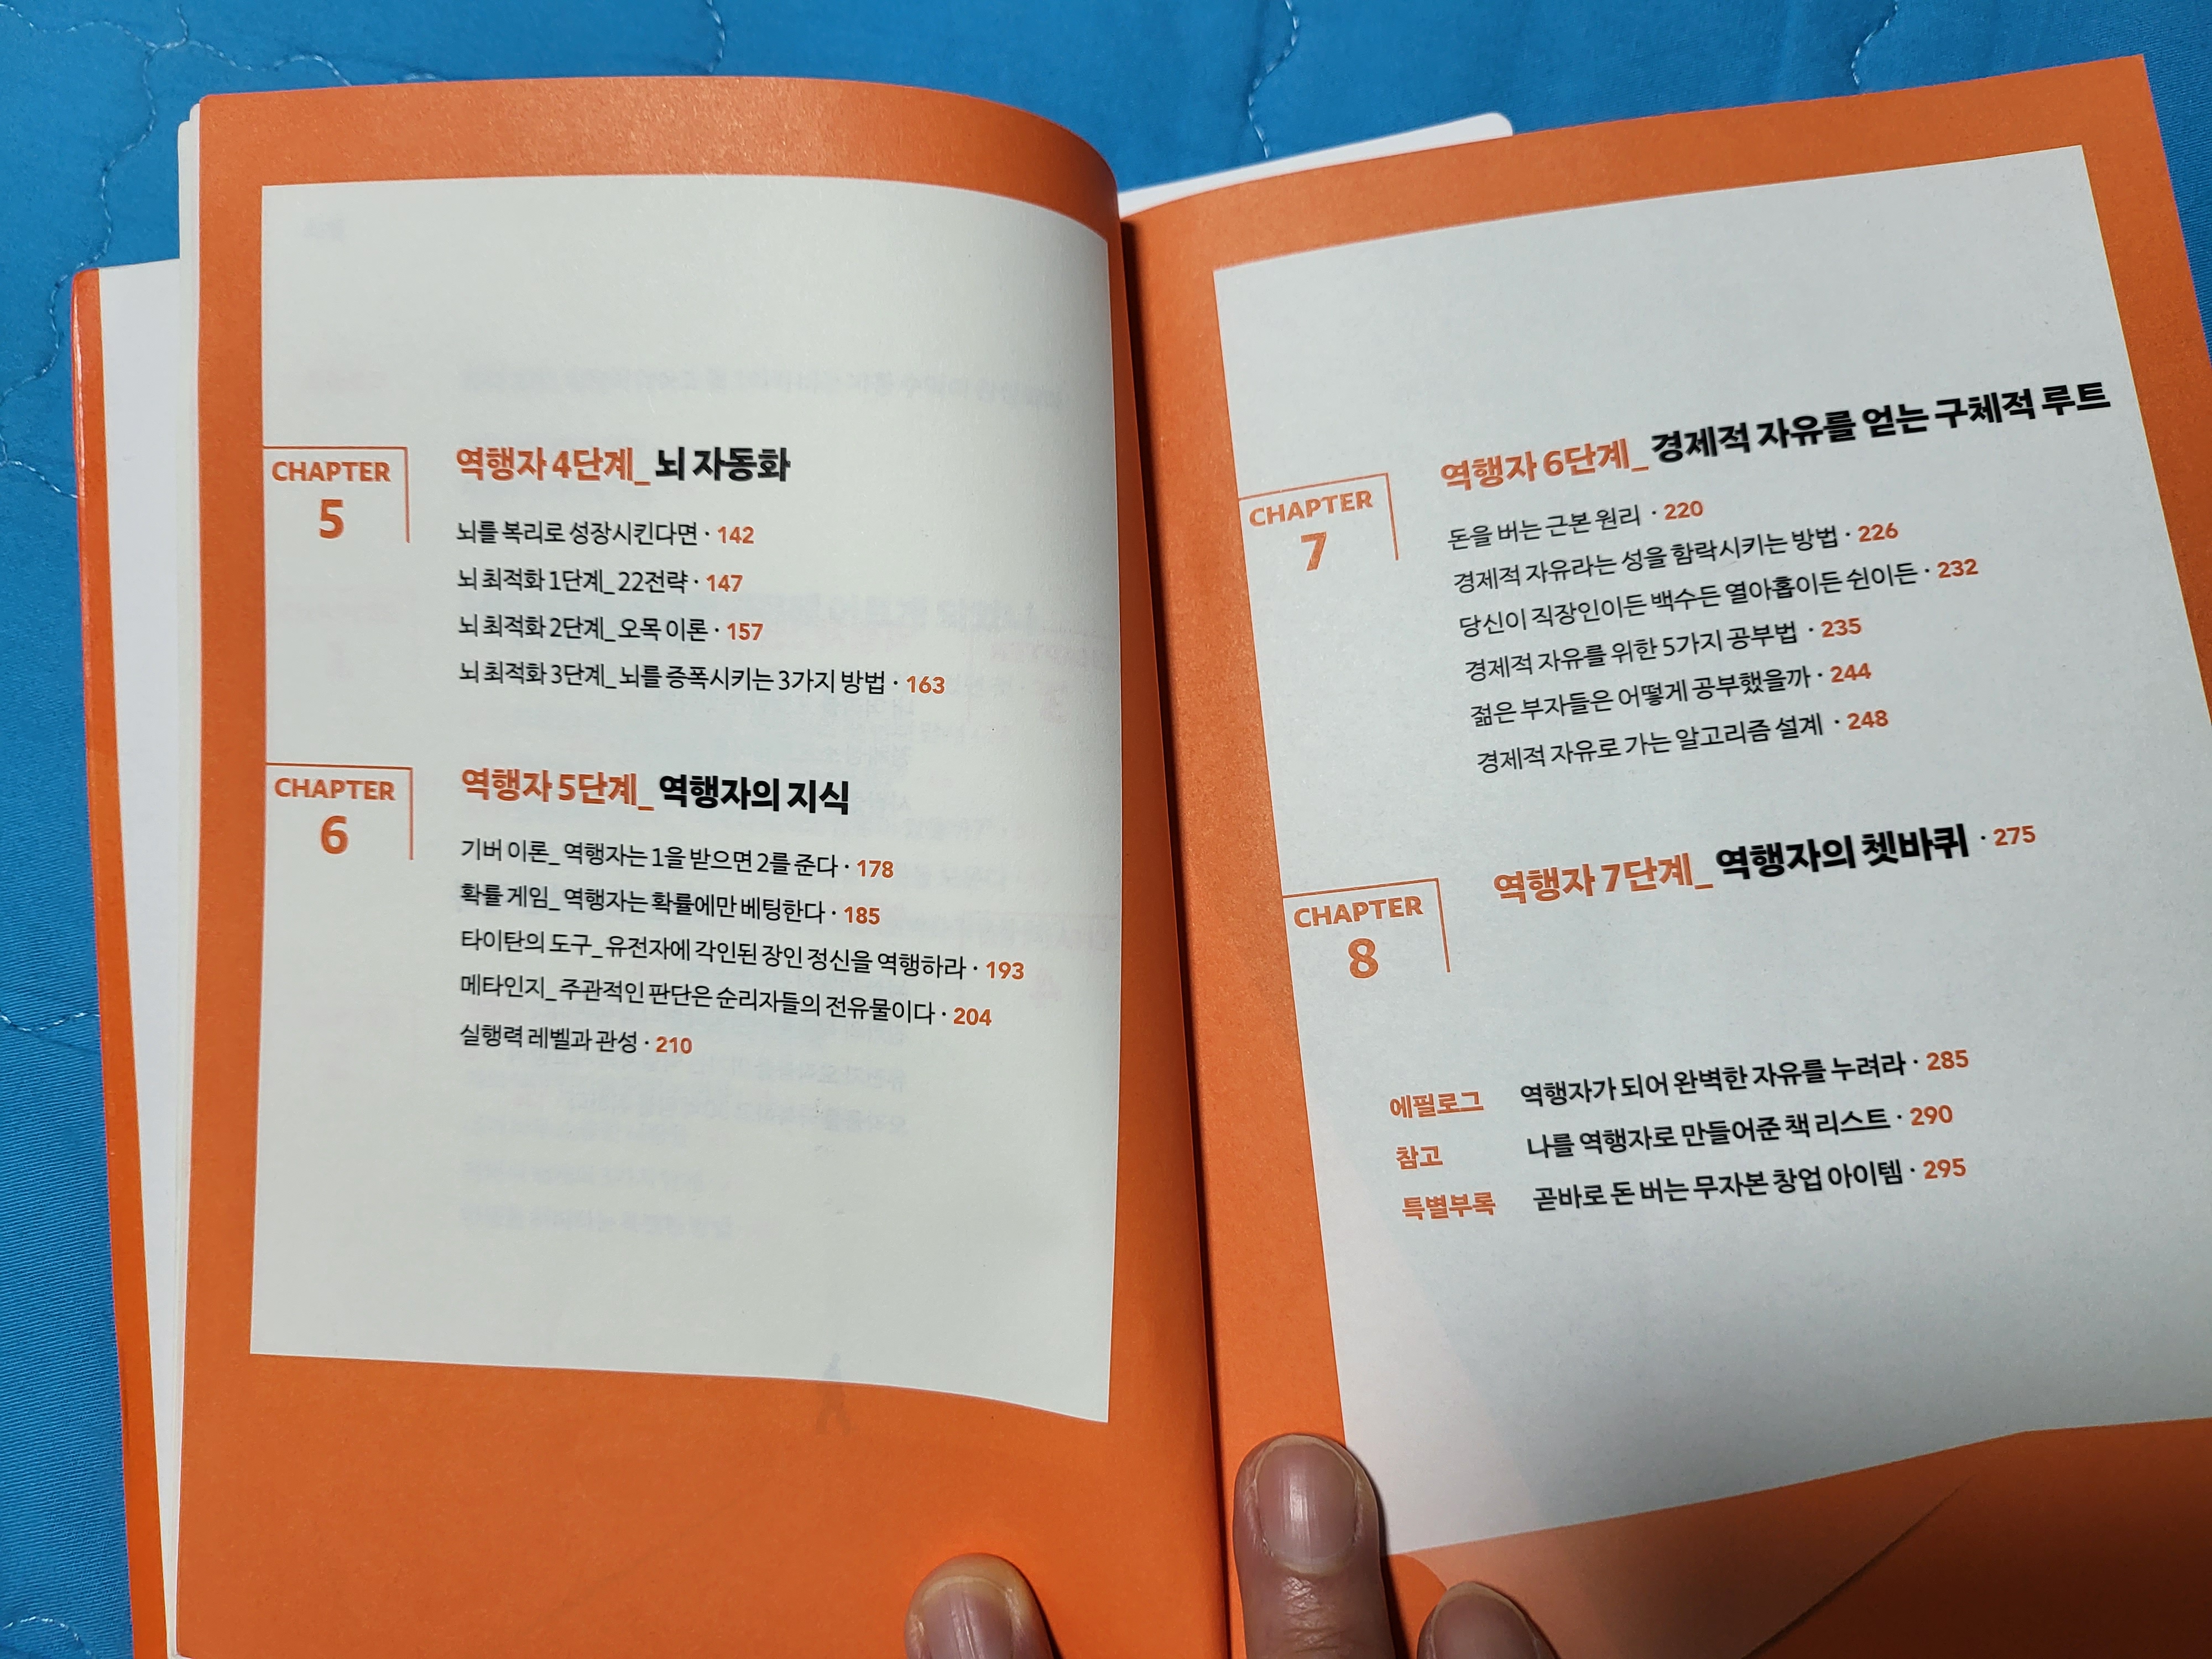 CHAPTER
5
역행자 4단계_ 뇌 자동화
뇌를 복리로 성장시킨다면 · 142
뇌 최적화 1단계_ 22전략 · 147
뇌 최적화 2단계_ 오목 이론 · 157
뇌 최적화 3단계_ 뇌를 증폭시키는 3가지 방법 · 163
CHAPTER
6
역행자 5단계_ 역행자의 지식
기버 이론_ 역행자는 1을 받으면 2를 준다 · 178
확률 게임_ 역행자는 확률에만 베팅한다 · 185
타이탄의 도구_ 유전자에 각인된 장인 정신을 역행하라 · 193
메타인지_ 주관적인 판단은 순리자들의 전유물이다 · 204
실행력 레벨과 관성 · 210
CHAPTER
7
역행자 6단계_ 경제적 자유를 얻는 구체적 루트
돈을 버는 근본 원리 · 220
경제적 자유라는 성을 함락시키는 방법 · 226
당신이 직장인이든 백수든 열아홉이든 쉰이든 · 232
경제적 자유를 위한 5가지 공부법 · 235
젊은 부자들은 어떻게 공부했을까 · 244
경제적 자유로 가는 알고리즘 설계 · 248
CHAPTER
8
역행자 7단계_ 역행자의 쳇바퀴 · 275
에필로그 역행자가 되어 완벽한 자유를 누려라 · 285
참고 나를 역행자로 만들어준 책 리스트 · 290
특별부록 곧바로 돈 버는 무자본 창업 아이템 · 295